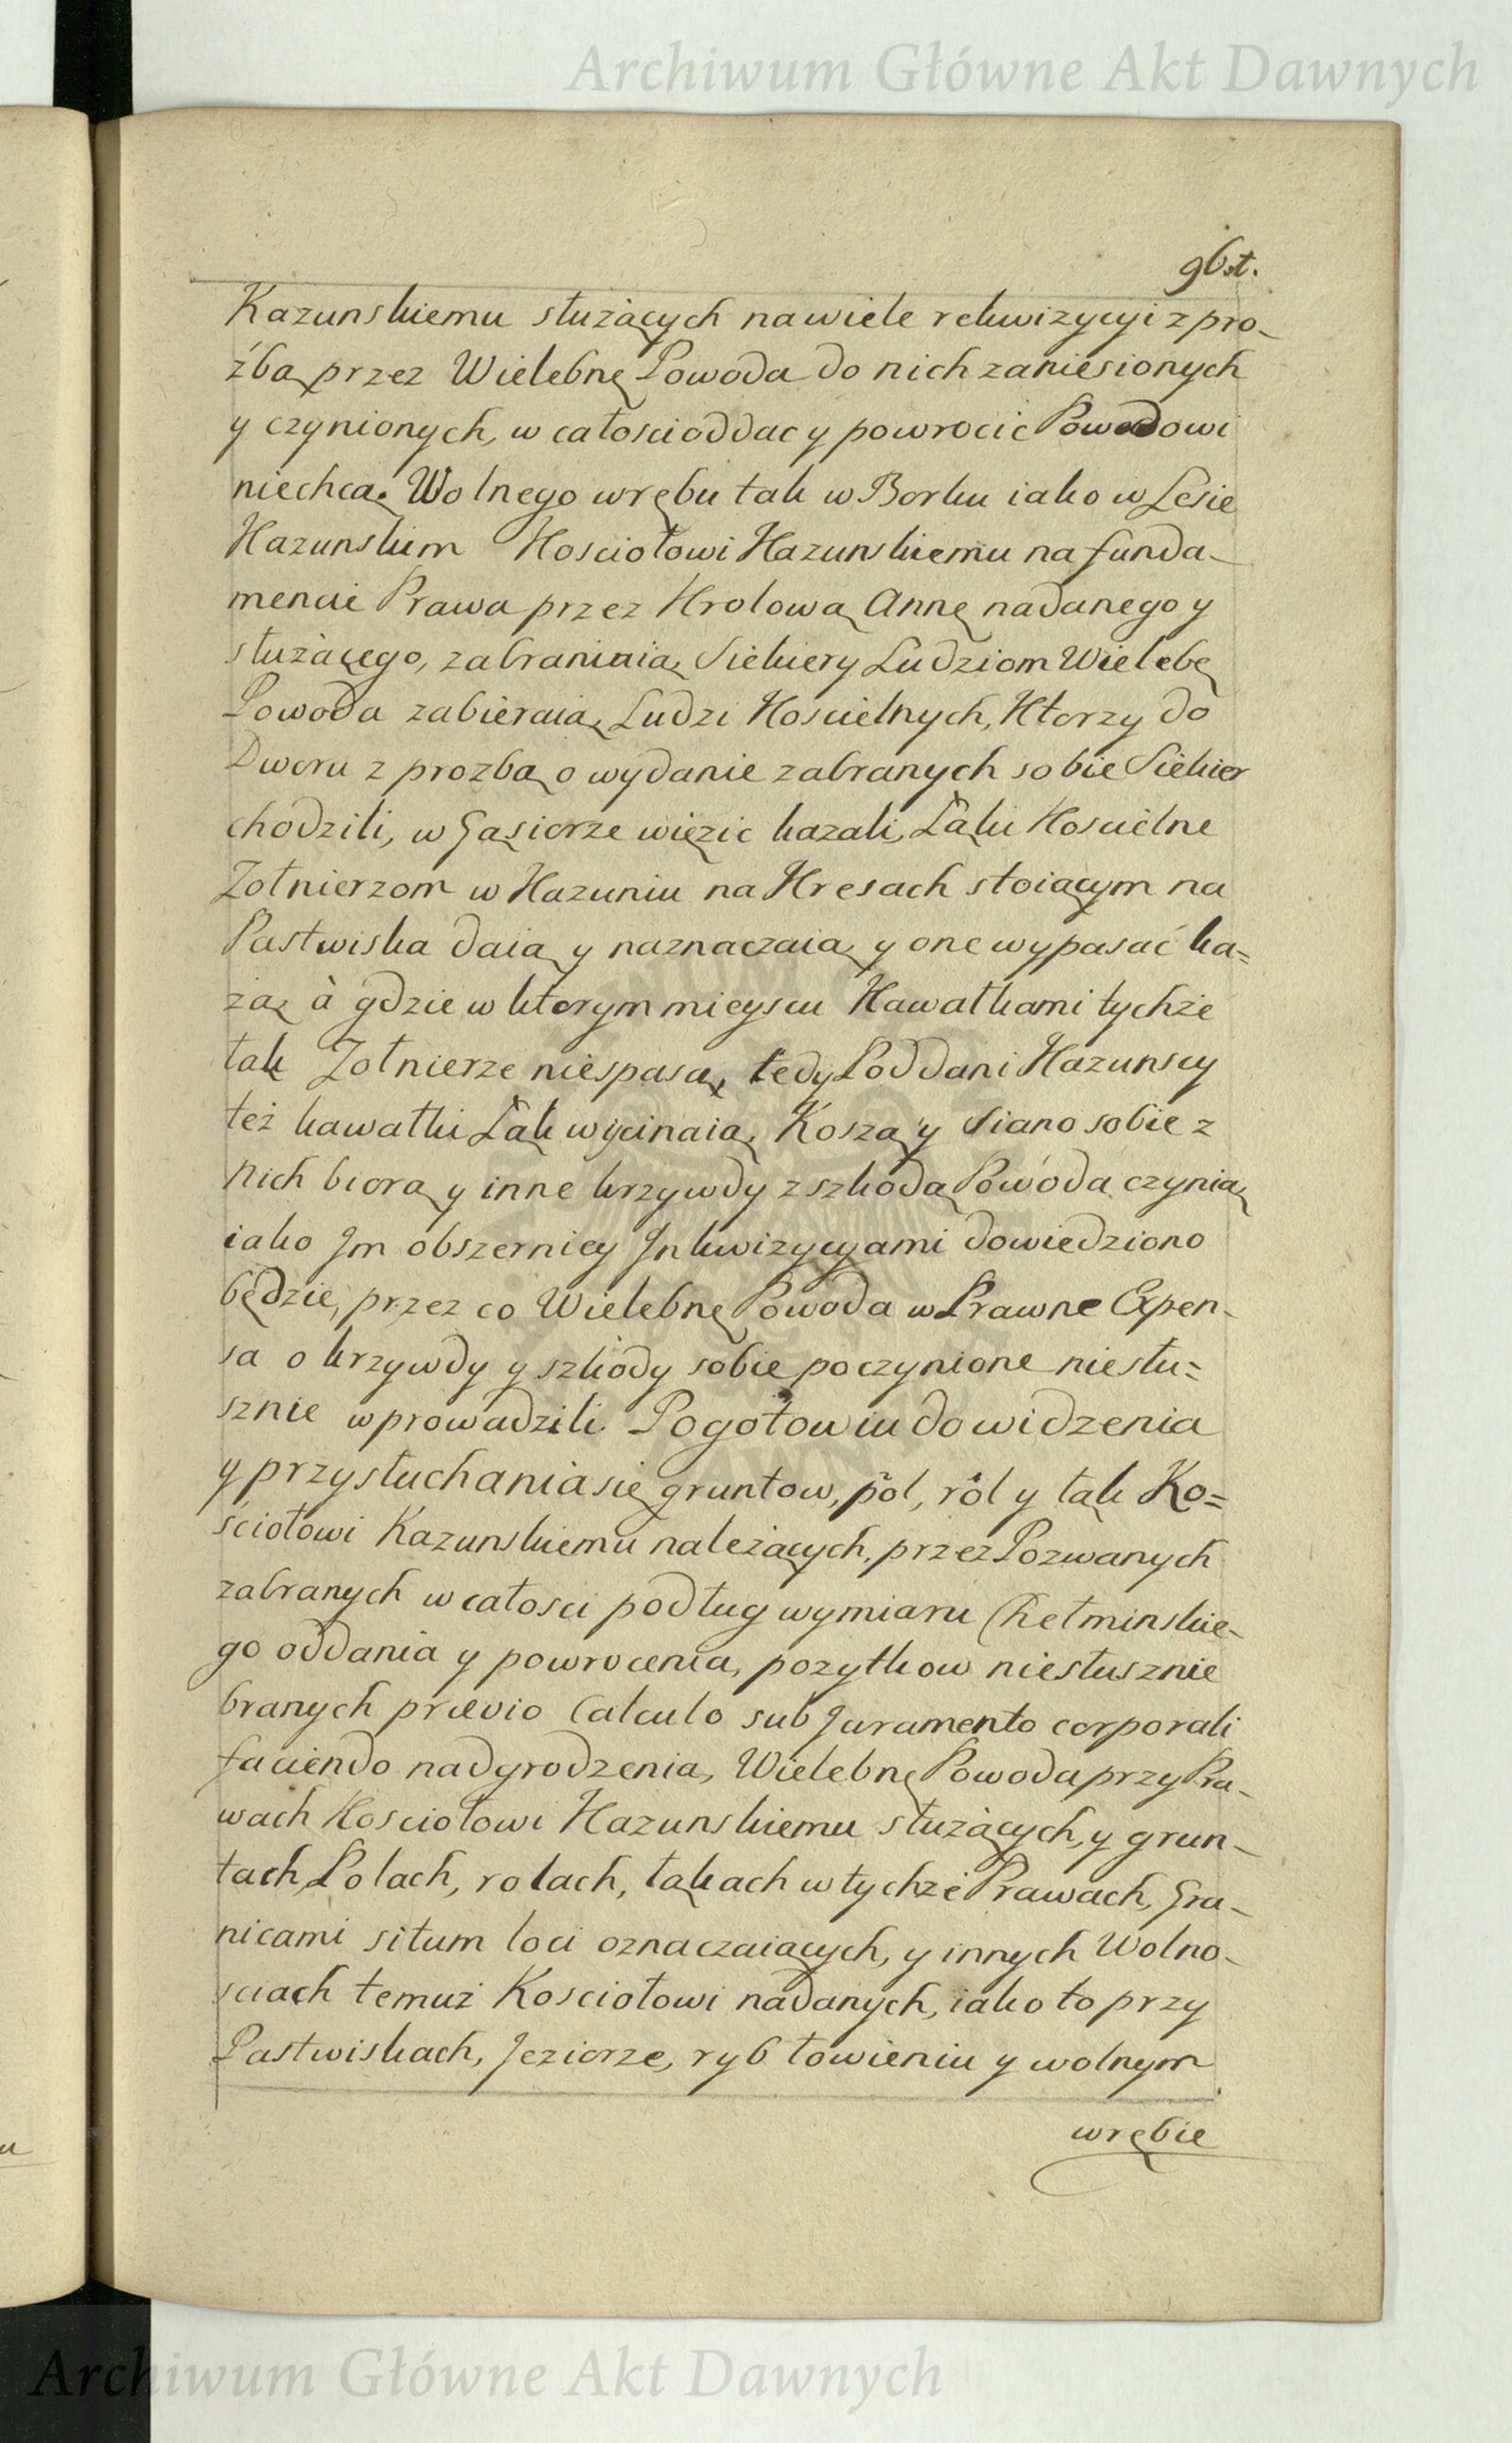 Archiwum Główne Akt Dawnych
96st.
Kazunskiemu służących na wiele rekwizycyi z pro-
źbą przez Wielebnę Powoda do nich zaniesionych
y czynionych, w całości oddac y powrocic Powodowi
niechcą. Wolnego wrębu tak w Borku iako w Lesie
Kazunskim Kosciołowi Kazunskiemu na funda-
mencie Prawa przez Krolową Annę nadanego y
służącego, zabraniaią, Siekiery Ludziom Wielebę
Powoda zabieraią, Ludzi Koscielnych, Ktorzy do
Dworu z prozbą o wydanie zabranych sobie Siekier
chodzili, w Gąsiorze więzic kazali, Łąki Koscielne
Zołnierzom w Kazuniu na Kresach stoiącym na
Pastwiska daią y naznaczaią y one wypasać ka=
żą, à gdzie w ktorym mieyscu Kawałkami tychże
łąk Zołnierze niespasą, tedy Poddani Kazunscy
też kawałki Łąk wycinaią, Koszą y Siano sobie z
nich biorą y inne krzywdy z szkodą Powoda czynią
iako Jm obszerniey Jnkwizycyami dowiedziono
będzie, przez co Wielebnę Powoda w Prawne Expen-
sa o krzywdy y szkody sobie poczynione niesłu=
sznie wprowadzili Pogotowiu do widzenia
y przysłuchania się gruntow, pól, ról y łąk Ko=
ściołowi Kazunskiemu należących, przez Pozwanych
zabranych w całosci podług wymiaru Chełminskie-
go oddania y powrocenia, pozytkow niesłusznie
branych prævio Calculo sub Juramento corporali
faciendo nadgrodzenia, Wielebnę Powoda przy Pra-
wach Kosciołowi Kazunskiemu służących, y grun-
tach, Polach, rolach, łąkach w tychże Prawach, Gra-
nicami situm loci oznaczaiących, y innych Wolno-
sciach temuż Kosciołowi nadanych, iako to przy
Pastwiskach, Jeziorze, ryb łowieniu y wolnym
wrębie
Archiwum Główne Akt Dawnych